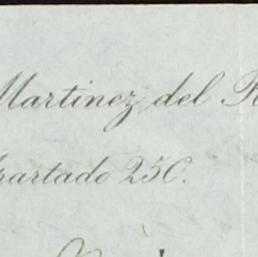 Martinez del
partado 250.